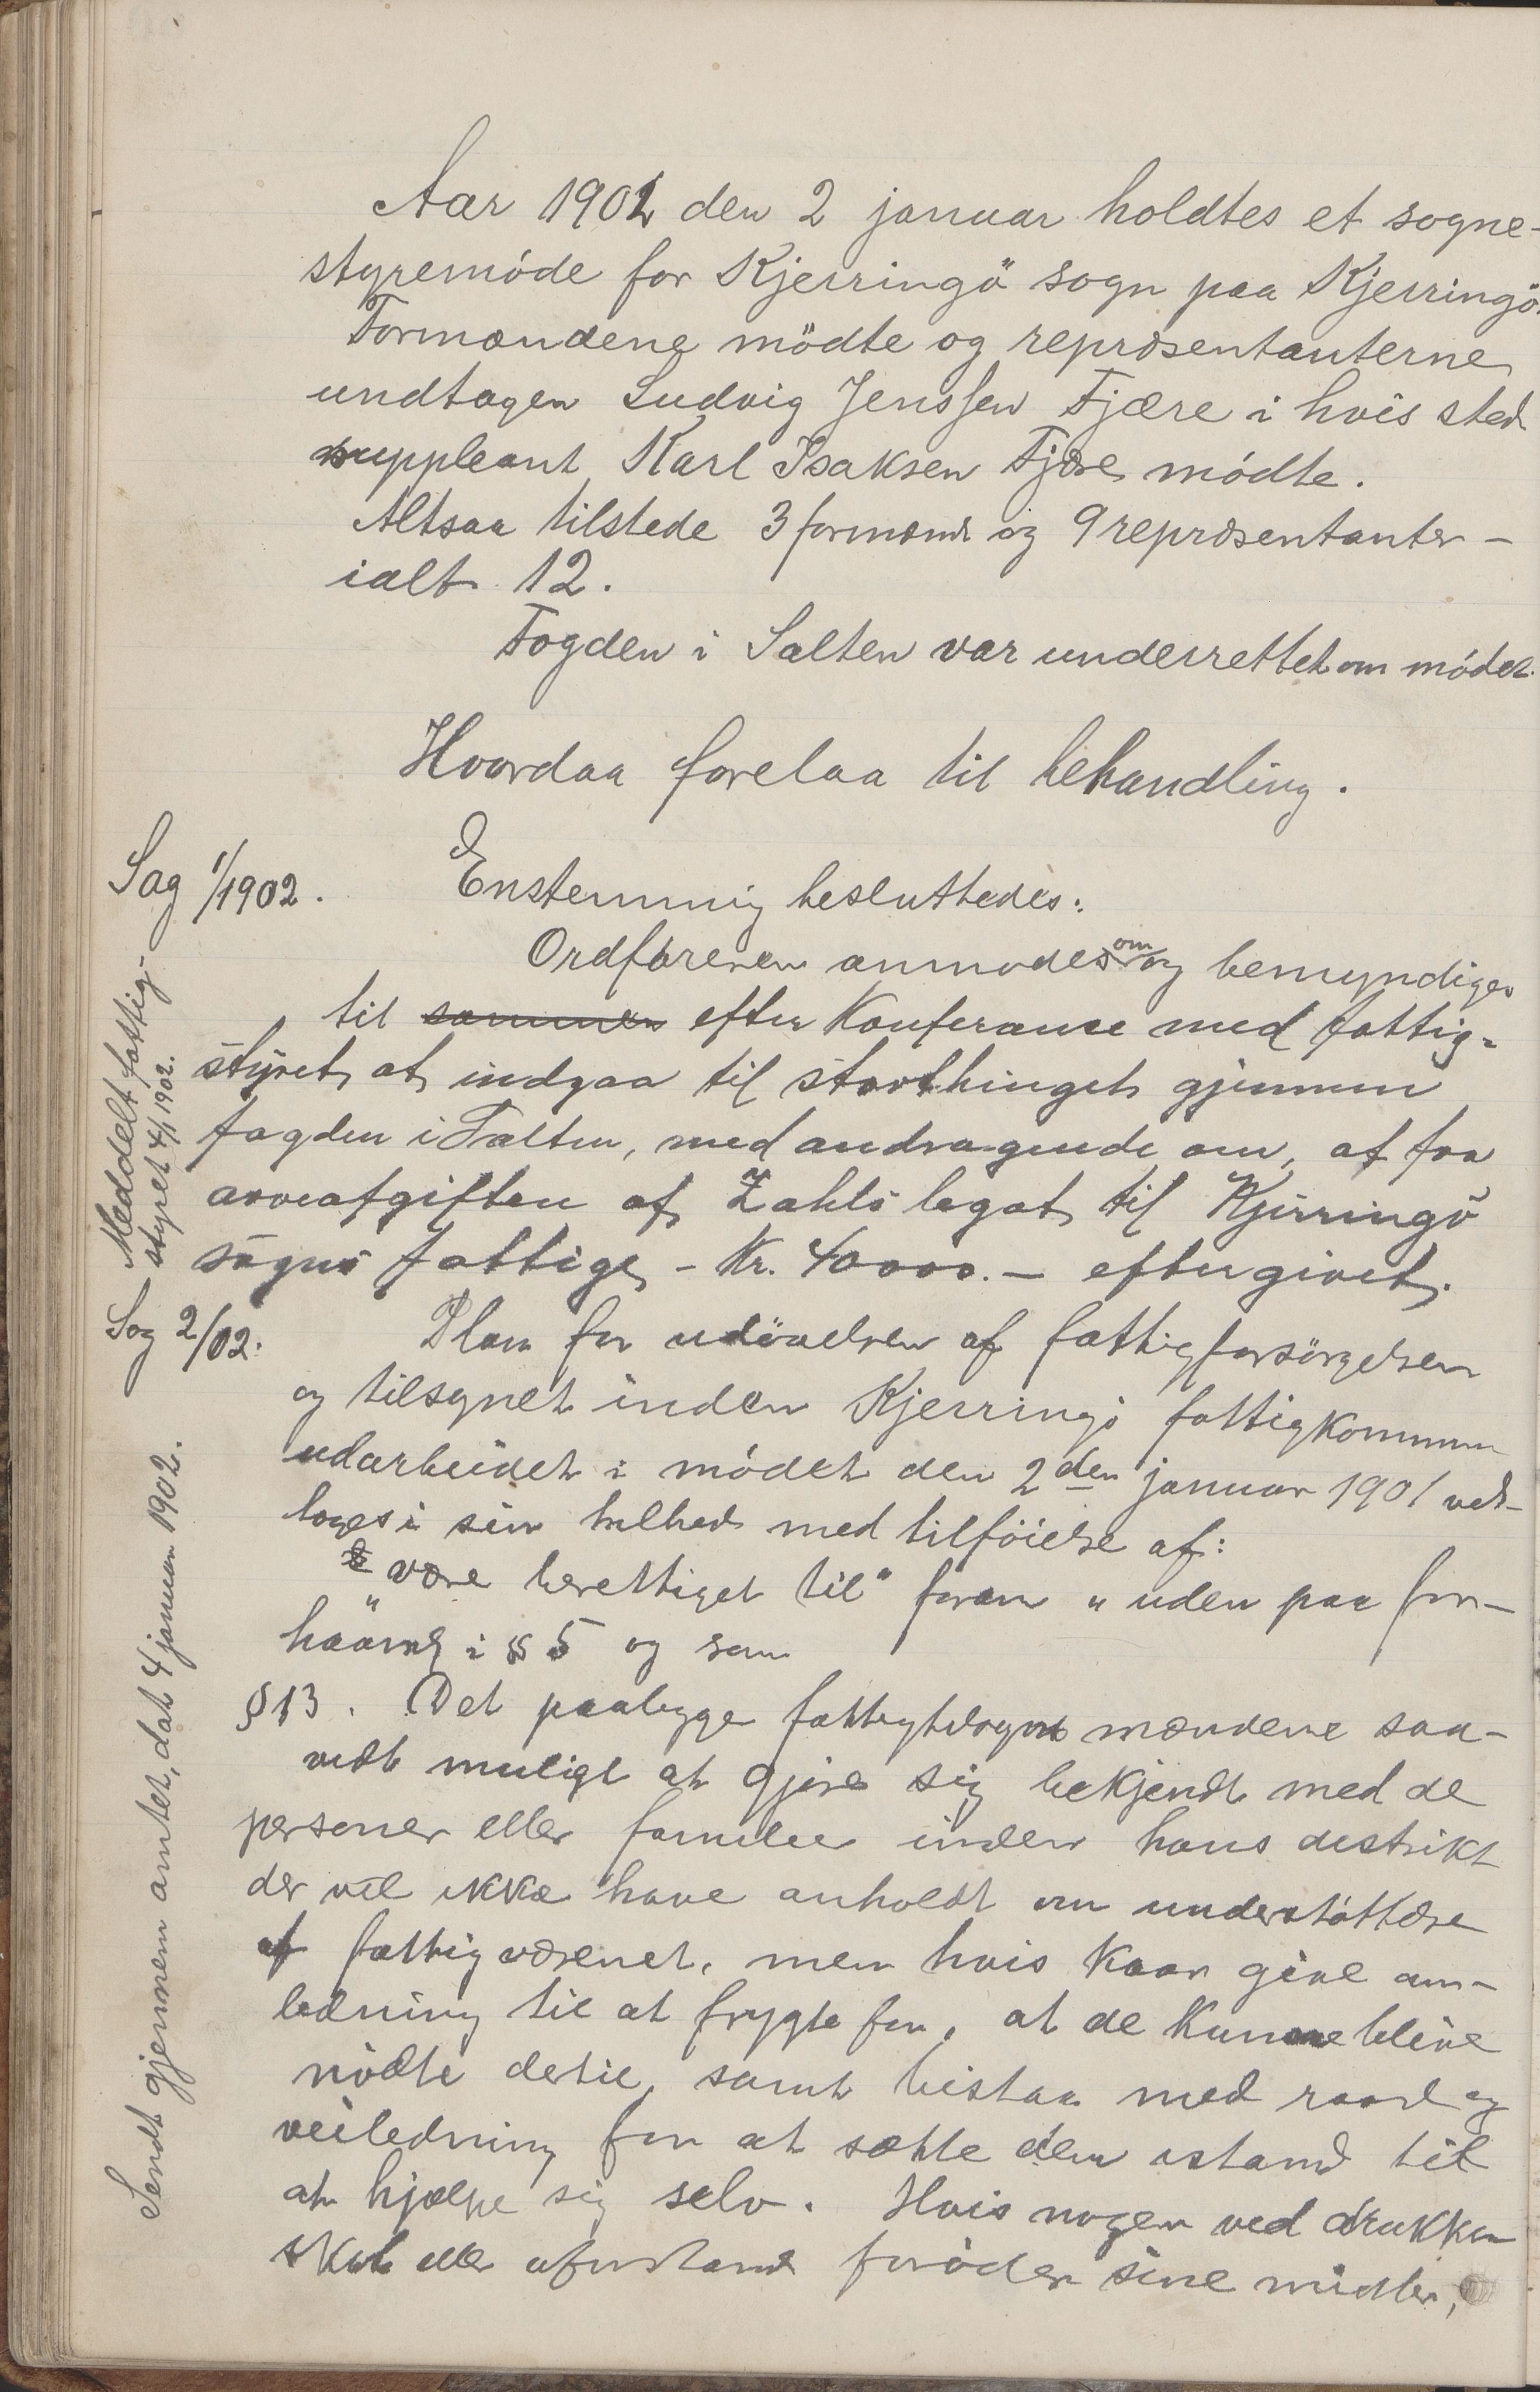 Aar 1902 den 2 januar holdtes et sogne-
styremöde for Kjerringö sogn paa Kjerringö.
Formændene mödte og repræsentanterne
undtagen Ludvig Jenssen Fjære i hvis sted
suppleant Karl Isaksen Fjære mödte.
Altsaa tilstede 3 formænd og 9 repræsentanter –
ialt 12.
Fogden i Salten var underrettet om mödet.
Hvordaa forelaa til behandling.
Sag 1/1902.
Enstemmig besluttedes:
Ordföreren anmodes om og bemyndiges
til sammen efter Konferanse med fattig-
styret at indgaa til storthinget gjennem
fogden i Salten, med andragende om, at faa
arveafgiften af Zahls legat til Kjerringö
sogns fattige – Kr. 40000. – eftergivet.
Meddelt fattig-
styret 4/1 1902.
Sag 2/02.
Plan for udövelsen af fattigforsörgelsen
og tilsynet inden Kjerringö fattigkommune
udarbeidet i mödet den 2den januar 1901 ved-
toges i sin helhed med tilföielse af:
"være berettiget til" foran "uden paa for-
haand i § 5 og som
§ 13. Det paaligger fattigtilsynsmændene saa-
vidt muligt at gjöre sig bekjendt med de
personer eller familier inden hans distrikt
der vel ikke have anholdt om understöttelse
af fattigvæsenet, men hvis Kaar give an-
ledning til at frygte for, at de Kunne blive
nödte dertil, samt bistaa med raad og
veiledning for at sætte dem istand til
at hjælpe sig selv. Hvis nogen ved drukken
skab eller uforstand foröder sine midler,
Sendt gjennem amtet, dat. 4 januar 1902.